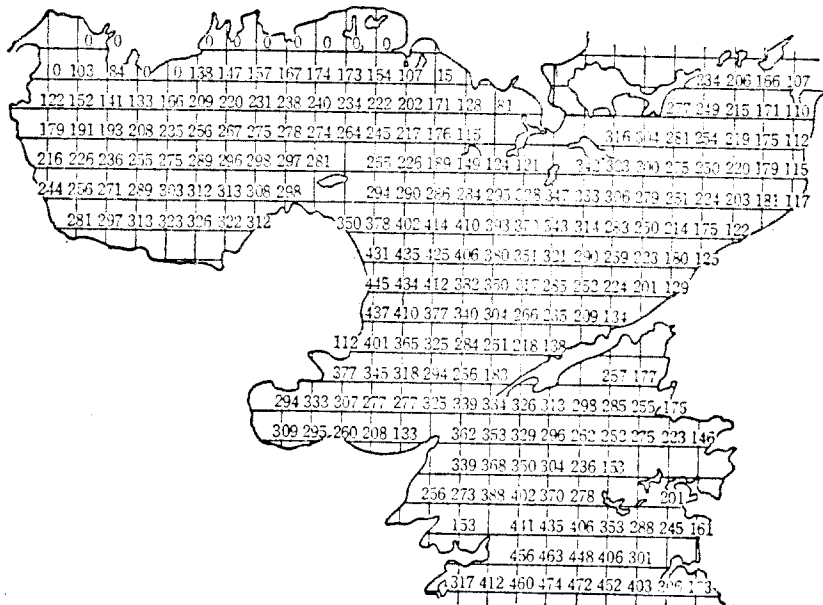 0 0 0 0 0 0 0 0 0
0 103 84 0 0 138 147 157 167 174 173 154 107 15 234 206 166 107
122 152 141 133 166 209 220 231 238 240 234 222 202 171 128 81 277 249 215 171 110
179 191 193 208 235 256 267 275 278 274 264 245 217 176 115 316 304 281 254 219 175 112
216 226 236 255 275 289 296 298 297 281 255 226 189 149 124 121 342 323 300 275 250 220 179 115
244 256 271 289 303 312 313 308 298 294 290 286 284 295 328 347 333 306 279 251 224 203 181 117
281 297 313 323 326 322 312 350 378 402 414 410 393 343 314 283 250 214 175 122
431 435 425 406 380 351 321 290 259 223 180 125
445 434 412 382 350 317 285 252 224 201 129
437 410 377 340 304 266 235 209 134
112 401 365 325 284 251 218 138
377 345 318 294 256 183 257 177
294 333 307 277 277 325 339 334 326 313 298 285 255 175
309 295 260 208 133 362 353 329 296 262 252 275 223 146
339 368 350 304 236 153
256 273 388 402 370 278 201
153 441 435 406 353 288 245 161
456 463 448 406 301
317 412 460 474 472 452 403 306 173